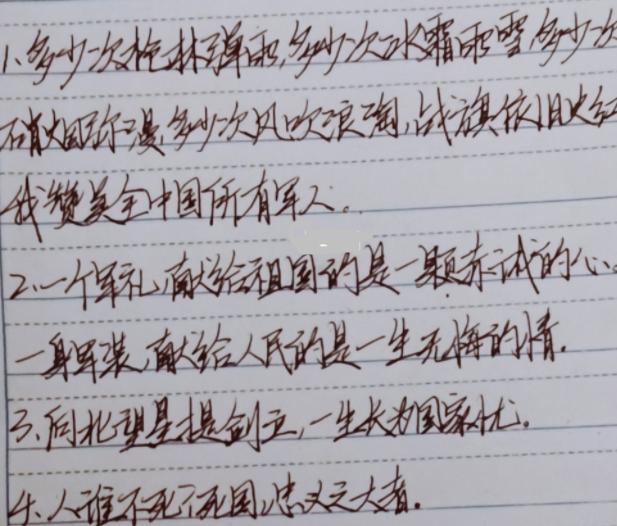 1、多少次枪林弹雨,多少次冰霜雨雪,多少次
硝烟弥漫,多少次风吹浪淘,战旗依旧火红
我赞美全中国所有军人。
2、一个军礼,献给祖国的是一颗赤诚的心。
一身军装,献给人民的是一生无悔的情.
3、向北望星提剑立,一生长为国家忧.
4、人谁不死,死国,忠义之大者.